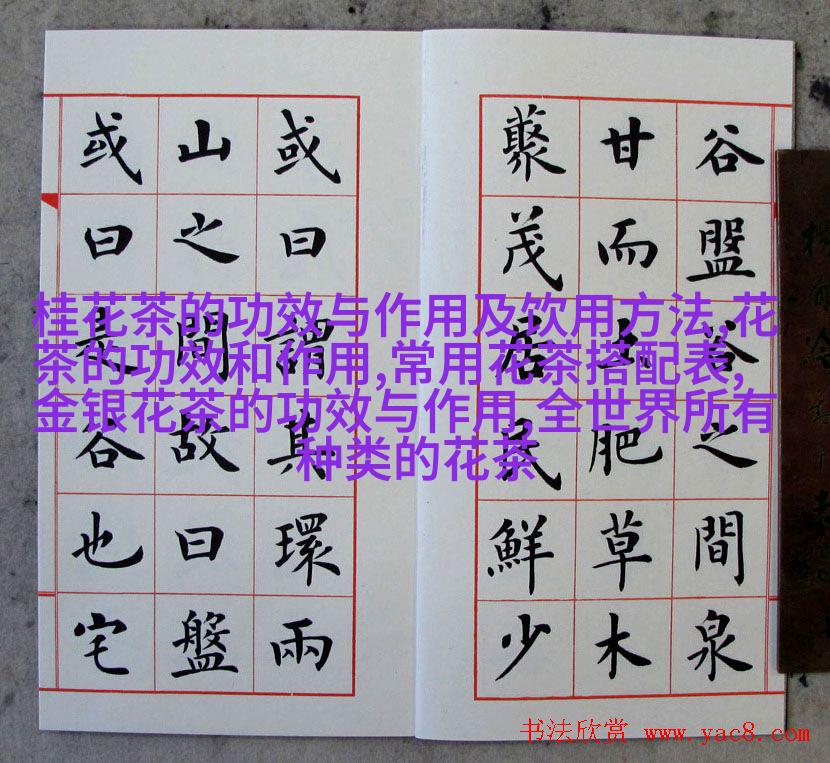 谷盤谷之間泉
甘而土肥草木
藂茂居民鮮少
或曰謂其環兩
山之間故曰盤
或曰是谷也宅
桂花茶的功效与作用及饮用方法,花
茶的功效和作用,常用花茶搭配表,
金银花茶的功效与作用,全世界所有
种类的花茶
书法欣赏 www.yac8.com